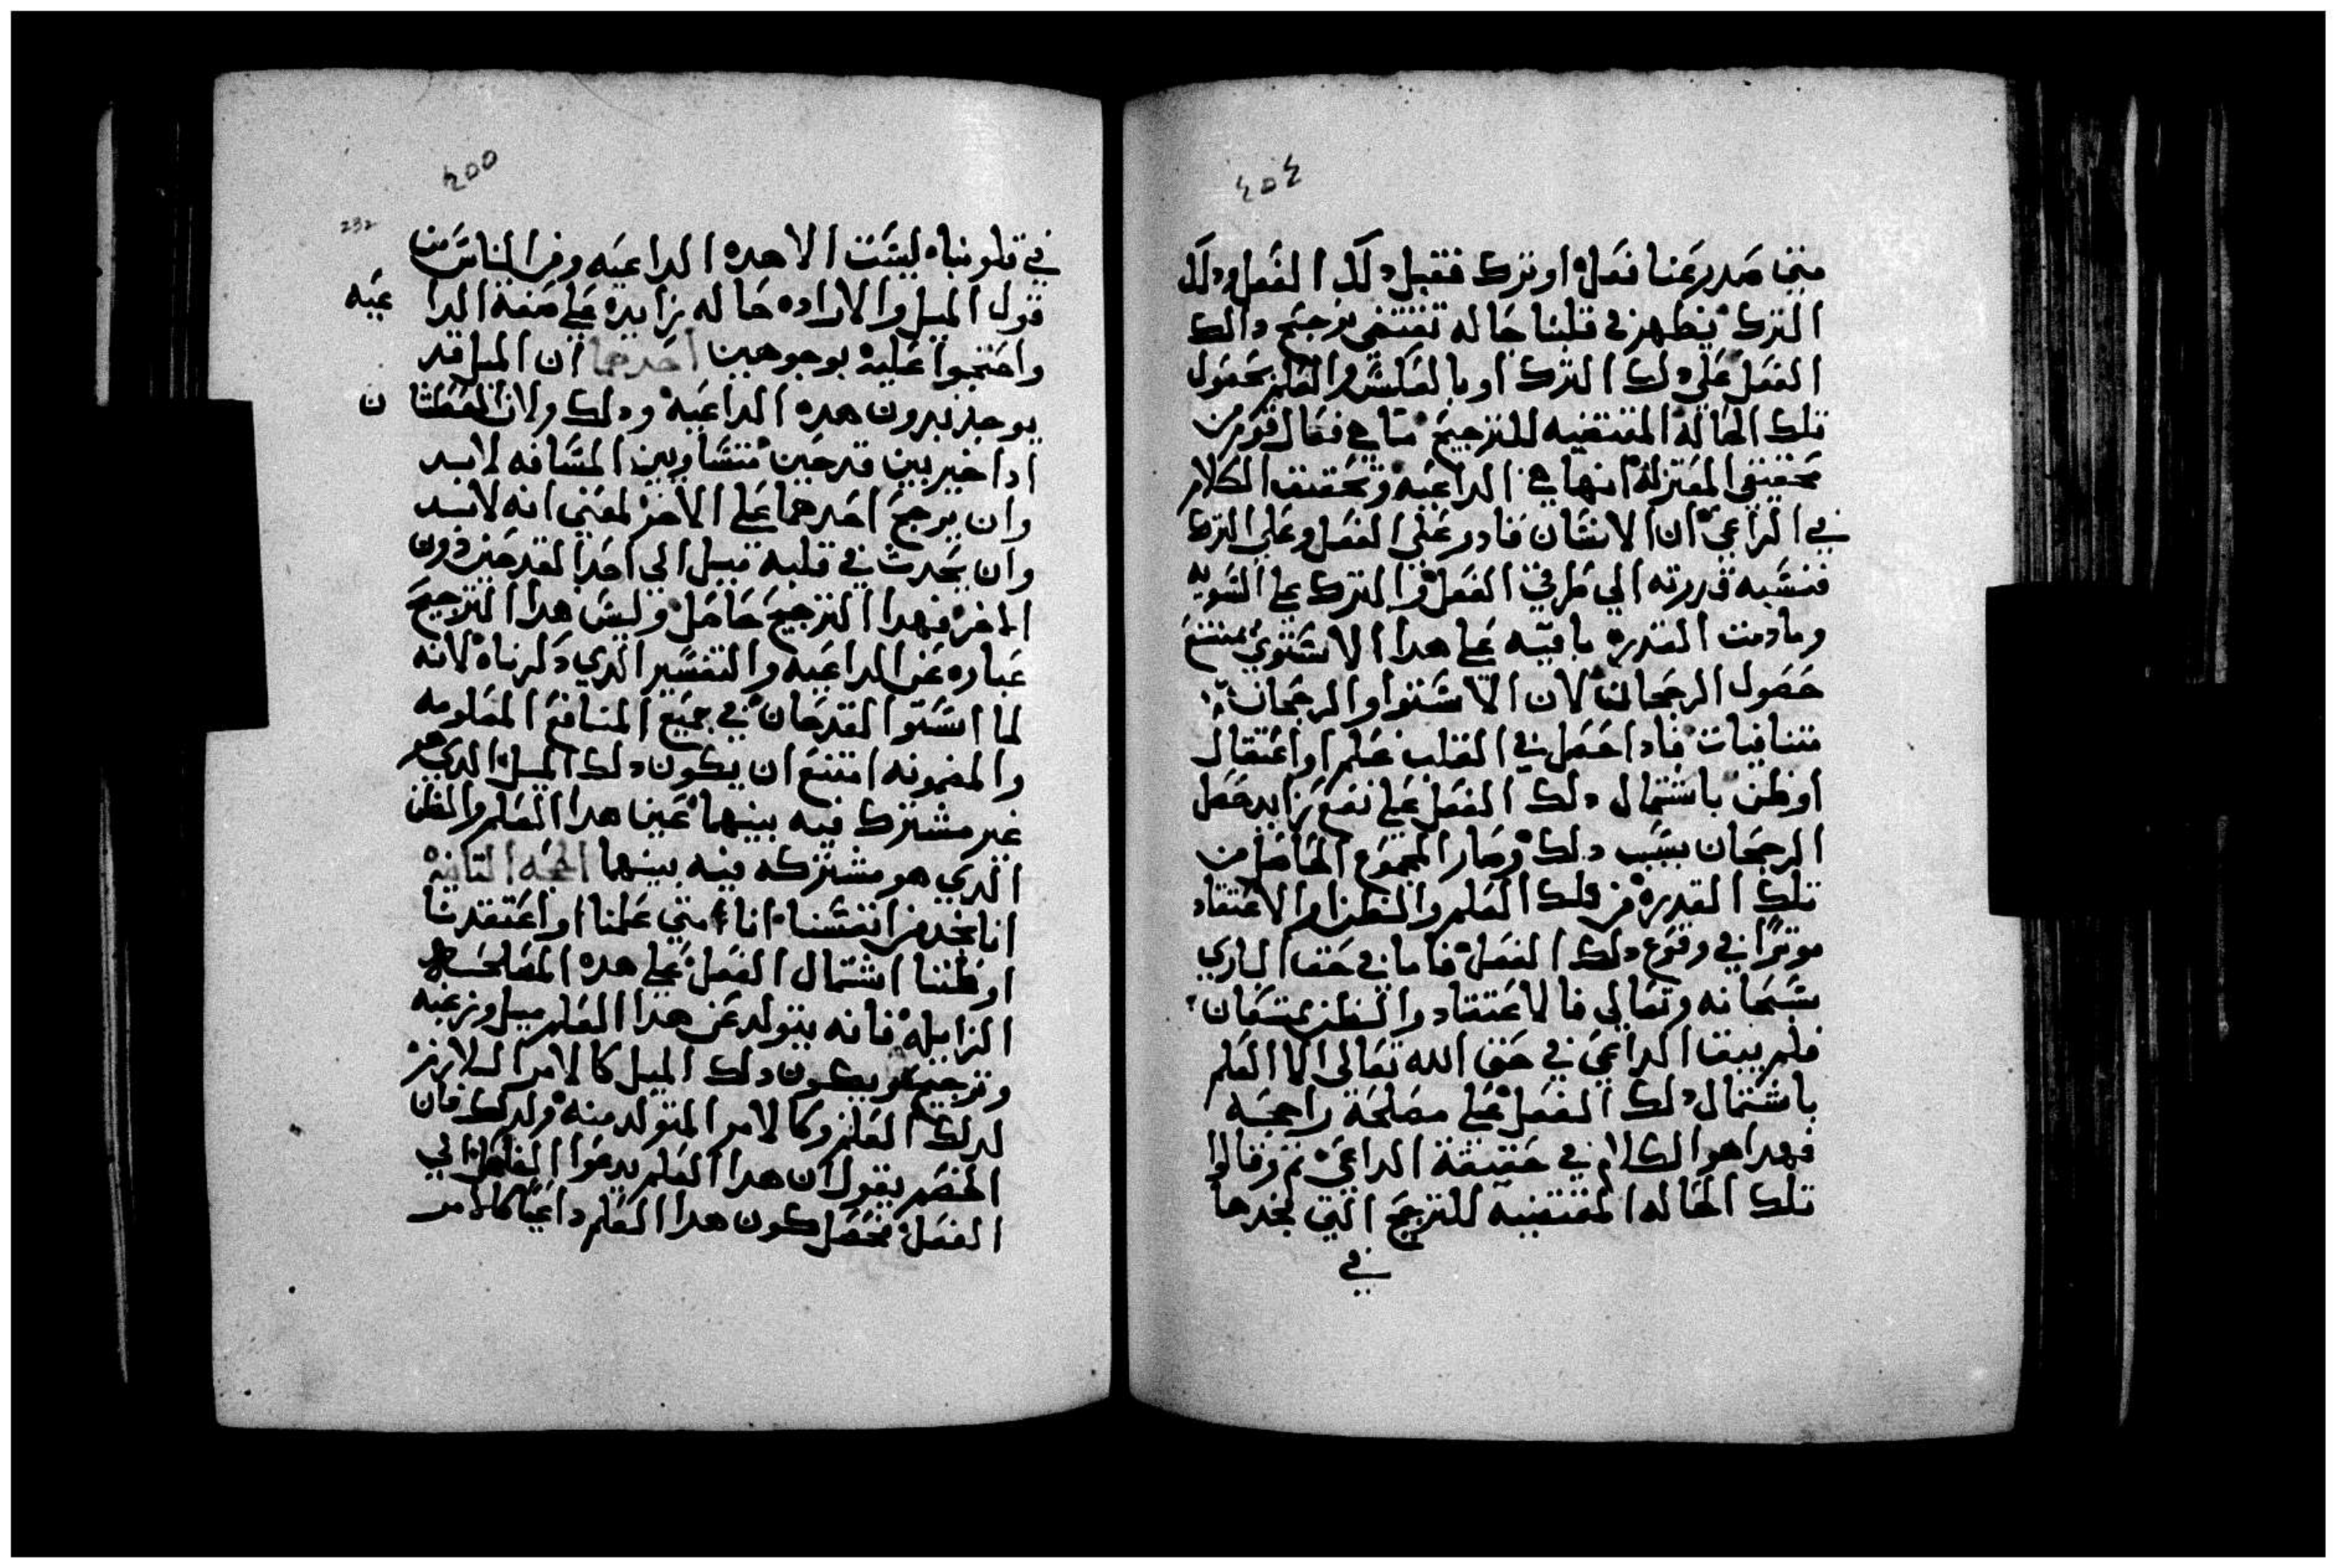 ٤٥٤
متى صدر عنا فعل او ترك فقبل ذلك الفعل وذلك
الترك يظهر في قلبنا حاله تقتضي ترجيح دالك
الفعل علي دلك الترك او بالعكس والعلم بحصول
تلك الحالة المقتضيه للترجيح فقال قوم من
محققي المعتزلة انها هي الداعيه وتحقيق الكلام
في الداعي ان الانسان قادر علي الفعل وعلي الترك
فنسبه قدرته الي طرفي الفعل والترك علي السويه
وما دمت القدره باقيه علي هدا الاستوي يمتنع
حصول الرجحان لان الاستوا والرجحان
متنافيات فادا حصل في القلب علم او اعتقاد
او ظن باشتمال دلك الفعل علي نفع زايد حصل
الرجحان بسبب دلك وصار المجموع الحاصل من
تلك القدره من دلك العلم والظن او الاعتقاد
موترًا في وقوع دلك الفعل فاما في حق الباري
سبحانه وتعالي فالاعتقاد والظن يمتنعان
فلم يبقا الداعي في حق الله تعالى الا العلم
باشتمال دلك الفعل علي مصلحة راجحه
فهدا هو الكلام في حقيقة الداعي تم وقالوا
تلك الحاله المقتضيه للترجيح التي نجدها
في
٤٥٥
232
في قلوبناه ليست الا هده الداعيه ومن الناس من
قول الميل والاراده حاله زايده علي صفة الداعيه
واحتجوا عليه بوجوهين احدهما ان الميل قد
يوجد بدون هده الداعيه ودلك ولان العطشان
ادا خير بين قدحين متساويين المسافه لابد
وان يرجح احدهما علي الاخر لمعني انه لابد
وان يحدث في قلبه ميل الي احد القدحين دون
الاخر فهدا الترجيح حاصل وليس هدا الترجيح
عباره عن الداعيه والتفسير الدي دكرناه لانه
لما استوا القدحان في جميع المنافع المعلومه
والمضمونه امتنع ان يكون دلك الميل الدي هو
غير مشترك فيه بينهما عين هدا العلم والظن
الدي هو مشتركه فيه بينهما الحجه التانيه
انا نجد من انفسنا انا متي علمنا او اعتقدنا
او ظننا اشتمال الفعل علي هده المصلحه
الزايله فانه يتولد عن هدا العلم ميل ورغبه
وترجيح ويكون دلك الميل كالامر اللازم
لدلك العلم وكالامر المتولد منه ولدلك فان
الخصم يقول ان هدا العلم يدعوا الفاعل الي
الفعل فحصل كون هدا العلم داعيًا كالامر